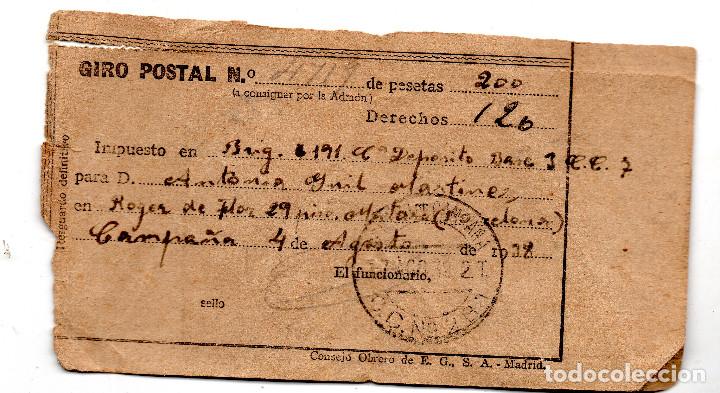 GIRO POSTAL N.º de pesetas 200
(a consignar por la Admón)
Derechos 1'20
Impuesto en Brig. 191 Cª Deposito Base 3 C.C. 7
para D. Antonia Guil Martinez
en Roger de Flor 29 Mataró (Barcelona)
Campaña 4 de Agosto de 1938
El funcionario,
sello
Resguardo definitivo
Consejo Obrero de E. G., S. A. - Madrid.
todocoleccion